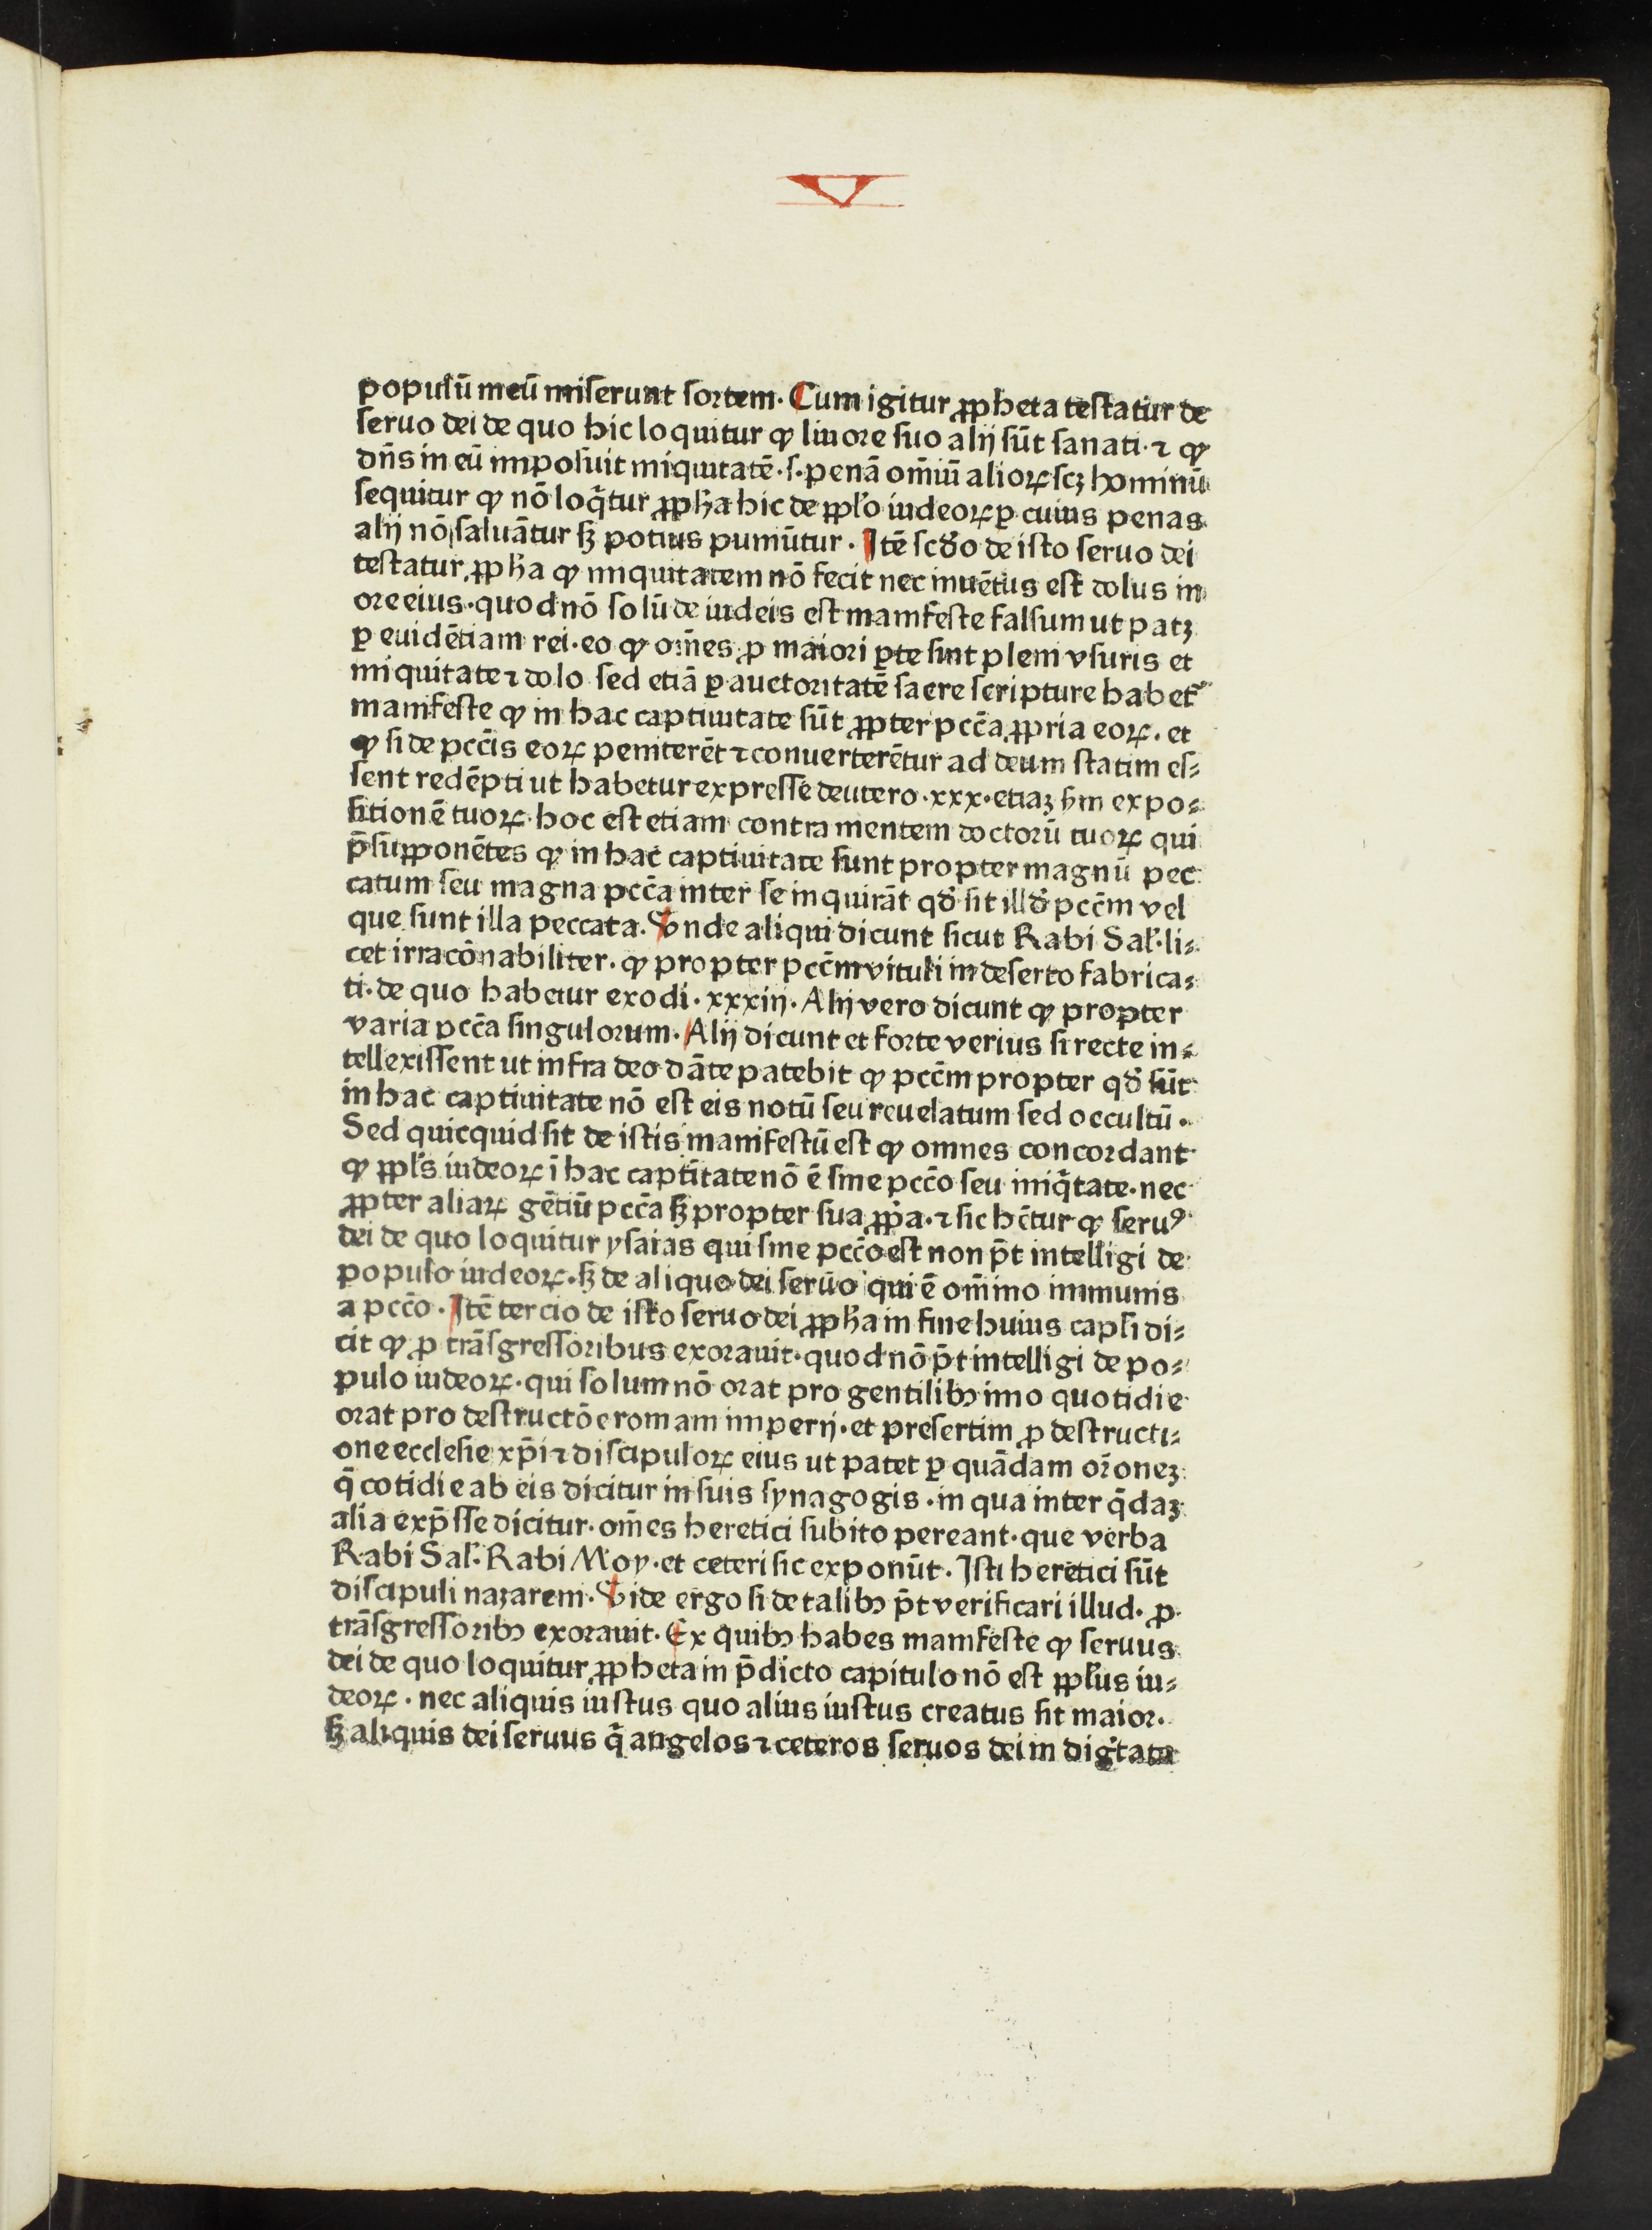 V
populū meū miserunt sortem. Cum igitur ꝓpheta testatur de
seruo dei de quo hic loquitur ꝙ liuore suo alij sūt sanati. ⁊ ꝙ
dn̄s in eū imposuit iniquitatē .s. penā om̄iū alioꝝ scꝫ hominū
sequitur ꝙ nō loq̄tur ꝓph̄a hic de ppl̓o iudeoꝝ ꝑ cuius penas
alij nō saluātur sꝫ potius puniūtur. Itē scd̓o de isto seruo dei
testatur ꝓph̄a ꝙ iniquitatem nō fecit nec inuētus est dolus in
ore eius. quod nō solū de iudeis est manifeste falsum ut patꝫ
ꝑ euidētiam rei. eo ꝙ om̄es ꝓ maiori ꝑte sint pleni vsuris et
iniquitate ⁊ dolo sed etiā ꝑ auctoritatē sacre scripture habet᷑
manifeste ꝙ in hac captiuitate sūt ꝓpter pcc̄a ꝓpria eoꝝ. et
ꝙ si de pcc̄is eoꝝ peniterēt ⁊ conuerterētur ad deum statim es⸗
sent redēpti ut habetur expresse deutero .xxx. etiaꝫ s̄m expo⸗
sitionē tuoꝝ. hoc est etiam contra mentem doctorū tuoꝝ qui
p̄supponētes ꝙ in hac captiuitate sunt propter magnū pec
catum seu magna pcc̄a inter se inquirāt qd̓ sit illd̓ pcc̄m vel
que sunt illa peccata. Vnde aliqui dicunt sicut Rabi Sal̓. li⸗
cet irracōnabiliter. ꝙ propter pcc̄m vituli in deserto fabrica⸗
ti. de quo habetur exodi .xxxiij. Alij vero dicunt ꝙ propter
varia pcc̄a singulorum. Alij dicunt et forte verius si recte in⸗
tellexissent ut infra deo dāte patebit ꝙ pcc̄m propter qd̓ sūt
in hac captiuitate nō est eis notū seu reuelatum sed occultū.
Sed quicquid sit de istis manifestū est ꝙ omnes concordant
ꝙ ppl̓s iudeoꝝ ī hac captīitate nō ē sine pcc̄o seu iniq̄tate. nec
ꝓpter aliaꝝ gētiū pcc̄a sꝫ propter sua ꝓp̓a. ⁊ sic hc̄tur ꝙ seruꝰ
dei de quo loquitur ysaias qui sine pcc̄o est non p̄t intelligi de
populo iudeoꝝ. sꝫ de aliquo dei seruo qui ē om̄ino immunis
a pcc̄o. Itē tercio de isto seruo dei ꝓph̄a in fine huius capl̓i di⸗
cit ꝙ ꝓ trāsgressoribus exorauit. quod nō p̄t intelligi de po⸗
pulo iudeoꝝ. qui solum nō orat pro gentilibꝫ imo quotidie
orat pro destructōe romani imperij. et presertim ꝓ destructi⸗
one ecclesie xp̄i ⁊ discipuloꝝ eius ut patet ꝑ quādam or̄oneꝫ
q̄ cotidie ab eis dicitur in suis synagogis. in qua inter q̄daꝫ
alia exp̄sse dicitur. om̄es heretici subito pereant. que verba
Rabi Sal̓. Rabi Moy. et ceteri sic exponūt. Isti heretici sūt
discipuli nazareni. Vide ergo si de talibꝫ p̄t verificari illud. ꝓ
trāsgressoribꝫ exorauit. Ex quibꝫ habes manifeste ꝙ seruus
dei de quo loquitur ꝓpheta in p̄dicto capitulo nō est ppl̓us iu⸗
deoꝝ. nec aliquis iustus quo alius iustus creatus sit maior.
sꝫ aliquis dei seruus q̄ angelos ⁊ ceteros seruos dei in dig̓tate